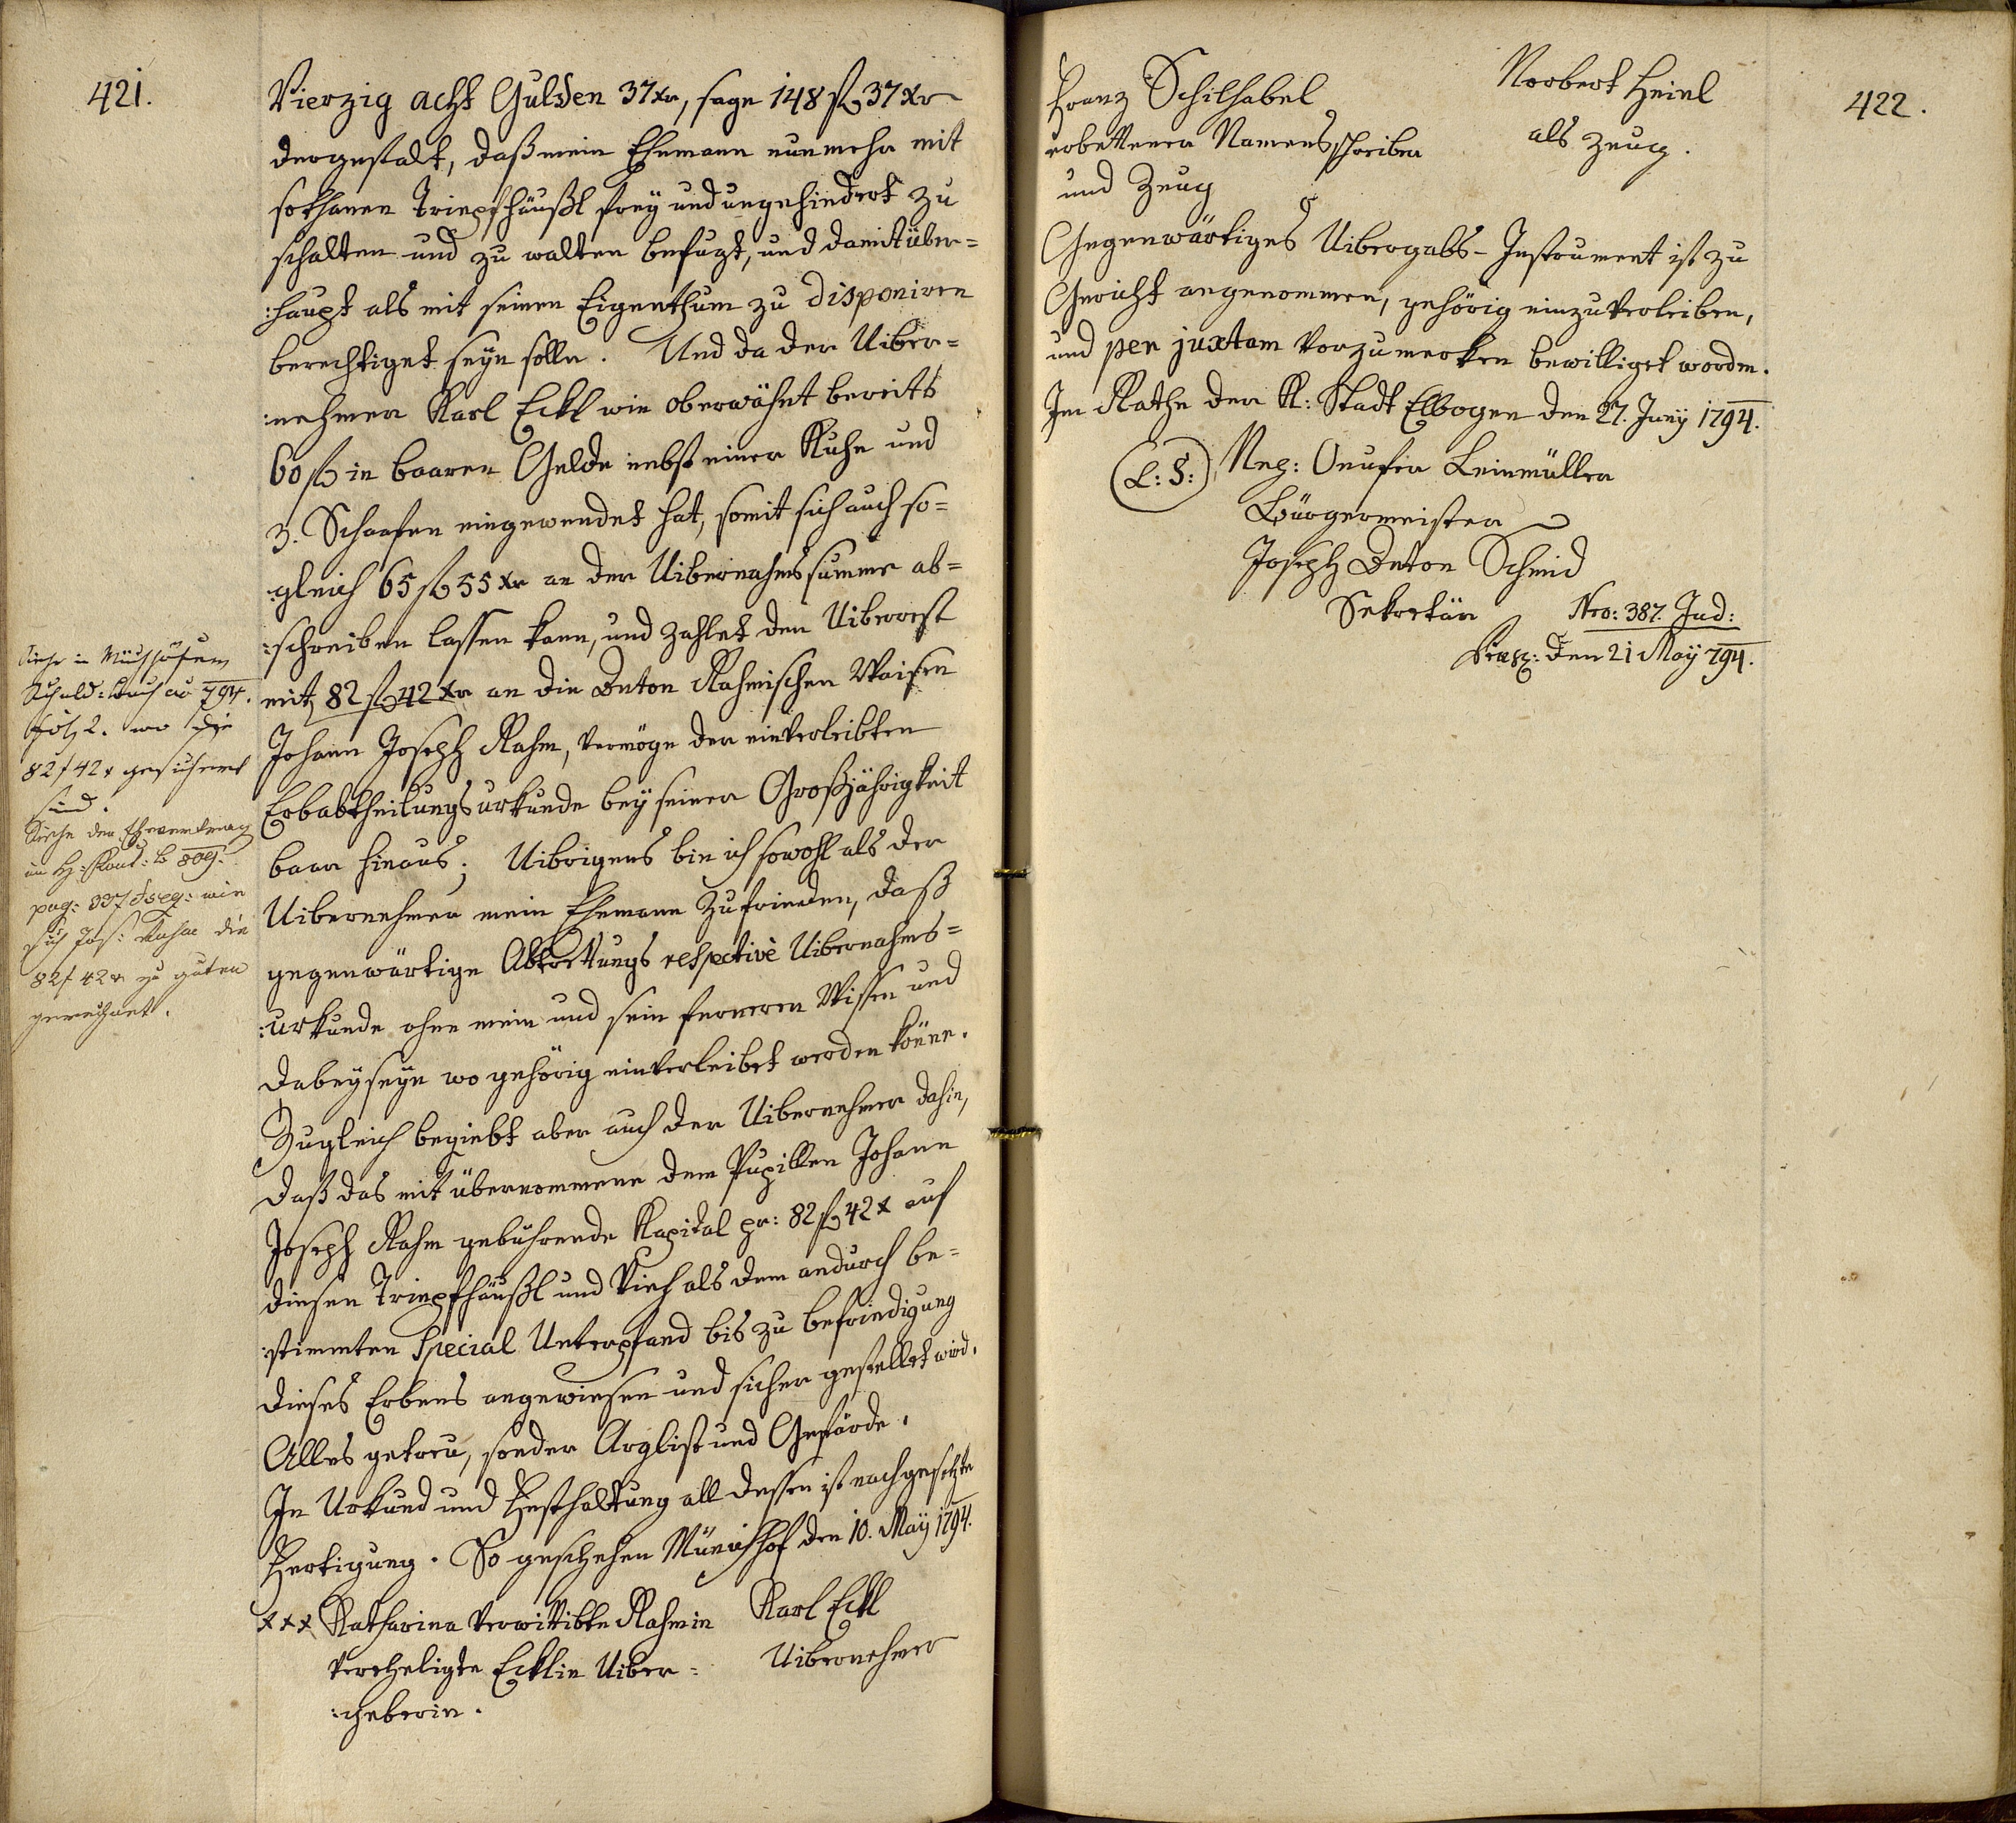 421.
Vierzig acht Gulden 37 xr, sage 148 f 37 xr
dergestalt, daß mein Ehemann nunmehr mit
sothanen Tripfhäußl frey und ungehindert zu
schalten und zu walten befugt, und damit über=
:haupt als mit seinen Eigenthum zu disponiren
berechtiget seyn solle. Und da der Uiber=
:nehmer Karl Eckl wie oberwähnt bereits
60 f in baaren Gelde nebst einer Kuhe und
3. Schaafen eingewendet hat, somit sich auch so=
:gleich 65 f 55 xr an der Uibernahmssumme ab=
:schreiben lassen kann, und zahlet den Uiberrest
mit 82 f 42 xr an die Anton Rahmischen Waisen
Johann Joseph Rahm, vermöge der einverleibten
Erbabtheilungsurkunde bey seiner Großjährigkeit
baar hinaus; Uibrigens bin ich sowohl als der
Uibernehmer mein Ehemann zufrieden, daß
gegenwärtige Abtrettungs respective Uibernahms=
:urkunde ohne mein und sein ferneren Wissen und
dabeyseyn wo gehörig einverleibet werden könne.
Zugleich begiebt aber auch der Uibernehmer dahin,
daß das mit übernommene dem Pupillen Johann
Joseph Rahm gebührende Kapital pr: 82 f 42 x auf
diesen Tripfhäußl und Vieh als dem andurch be=
:stimmten Special Unterpfand bis zu befriedigung
dieses Erbens angewiesen und sicher gestellet wird.
Alles getreu, sonder Arglist und Gefärde.
In Urkund und Festhaltung all dessen ist nachgesetzte
Fertigung. So geschehen Münichhof den 10. May 1794.
xxx Katharina verwittibte Rahmin
verehligte Ecklin Uiber=
:geberin.
Karl Eckl
Uibernehmer
Siehe in Münchhöfer
Schuld: Buch de 794.
fol: 2. wo die
82 f 42 x gesichert
sind.
Siehe den Ehevertrag
im H: Kont: B 809.
pag: 337 et seq: wie
sich Jos: Rahm die
82 f 42 x zu guten
gerechnet.
422.
Franz Schilhabel
erbettener Namensschreiber
und Zeug
Norbert Heinl
als Zeug.
Gegenwärtiges Uibergabs-Instrument ist zu
Gericht angenommen, gehörig einzuverleiben,
und per juxtam vorzumerken bewilliget worden.
Im Rathe der K: Stadt Elbogen den 27. Juny 1794.
(L: S:) Onufer Leinmüller
Bürgermeister
Joseph Anton Schmid
Sekretär
Nro: 387. Jud:
Praes: den 21 May 794.